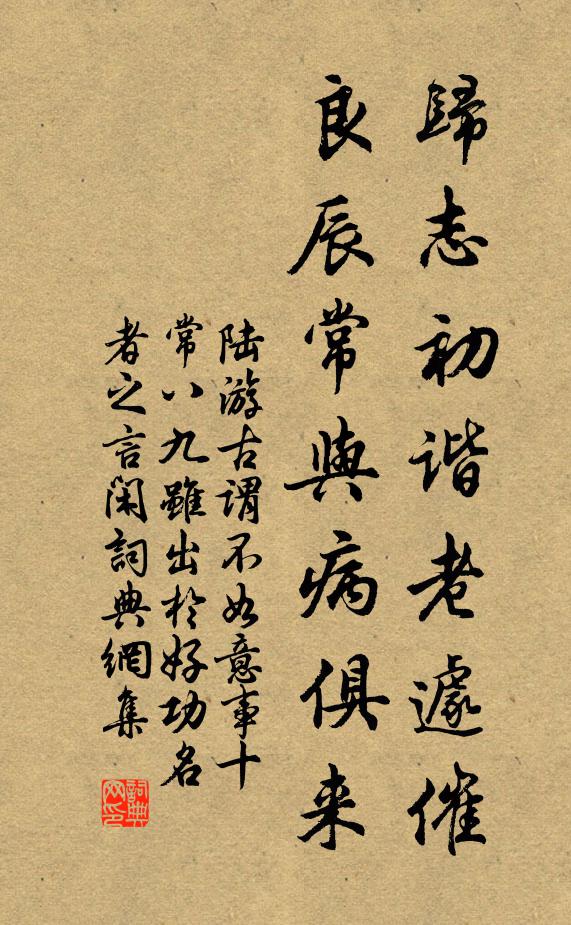 歸志初谐老遽催
良辰常與病俱来
陆游古谓不如意事十
常八九雖出於好功名
者之言闲詞典網集
詞典网印